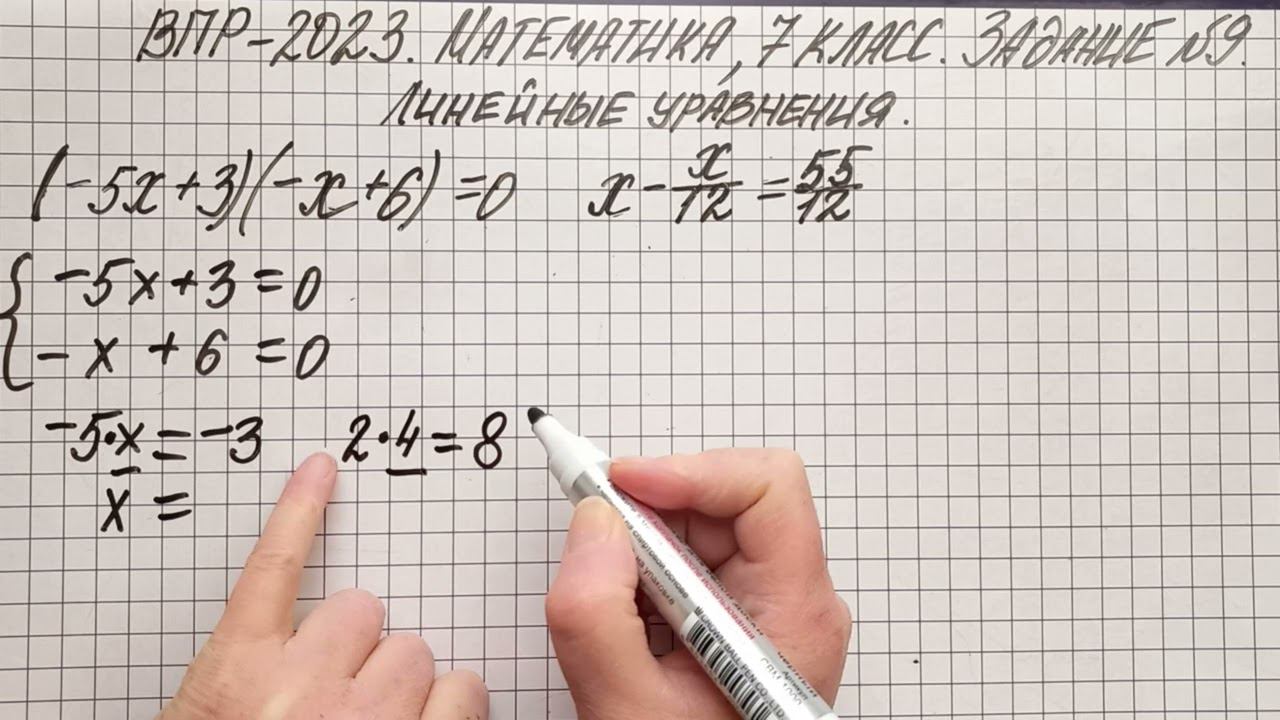 ВПР-2023. МАТЕМАТИКА, 7 КЛАСС. ЗАДАНИЕ №9.
ЛИНЕЙНЫЕ УРАВНЕНИЯ.
(-5x+3)(-x+6)=0 x - x/12 = 55/12
{ -5x+3=0
-x+6=0
-5·x=-3 2·4=8
x=